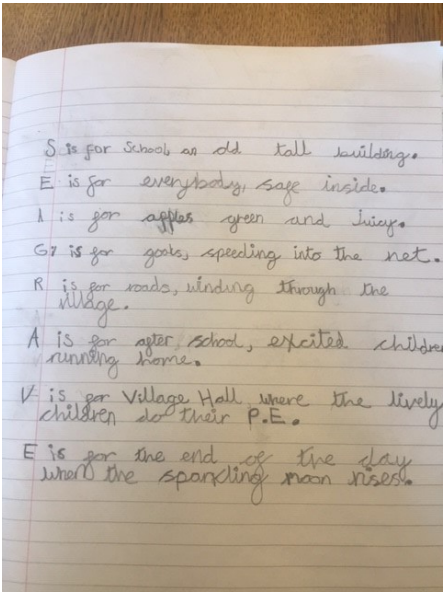 S is for School, an old tall building.
E is for everybody, safe inside.
A is for apples green and Juicy.
G is for goals, speeding into the net.
R is for roads, winding through the
village.
A is for after school, excited children
running home.
V is for Village Hall where the lively
children do their P.E.
E is for the end of the day
when the sparkling moon rises.